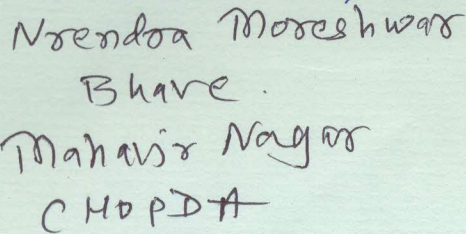 Nrendra Moreshwar
Bhave.
Mahavir Nagar
CHOPDA